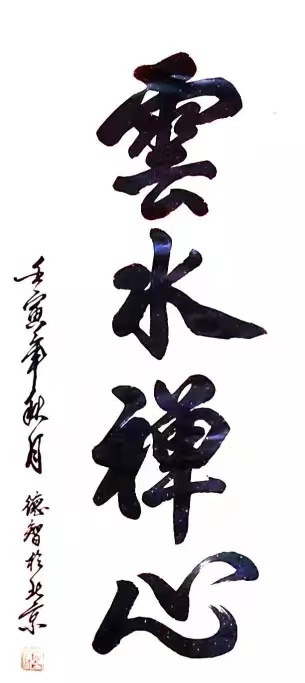 雲水禅心
壬寅年秋月 德智於北京